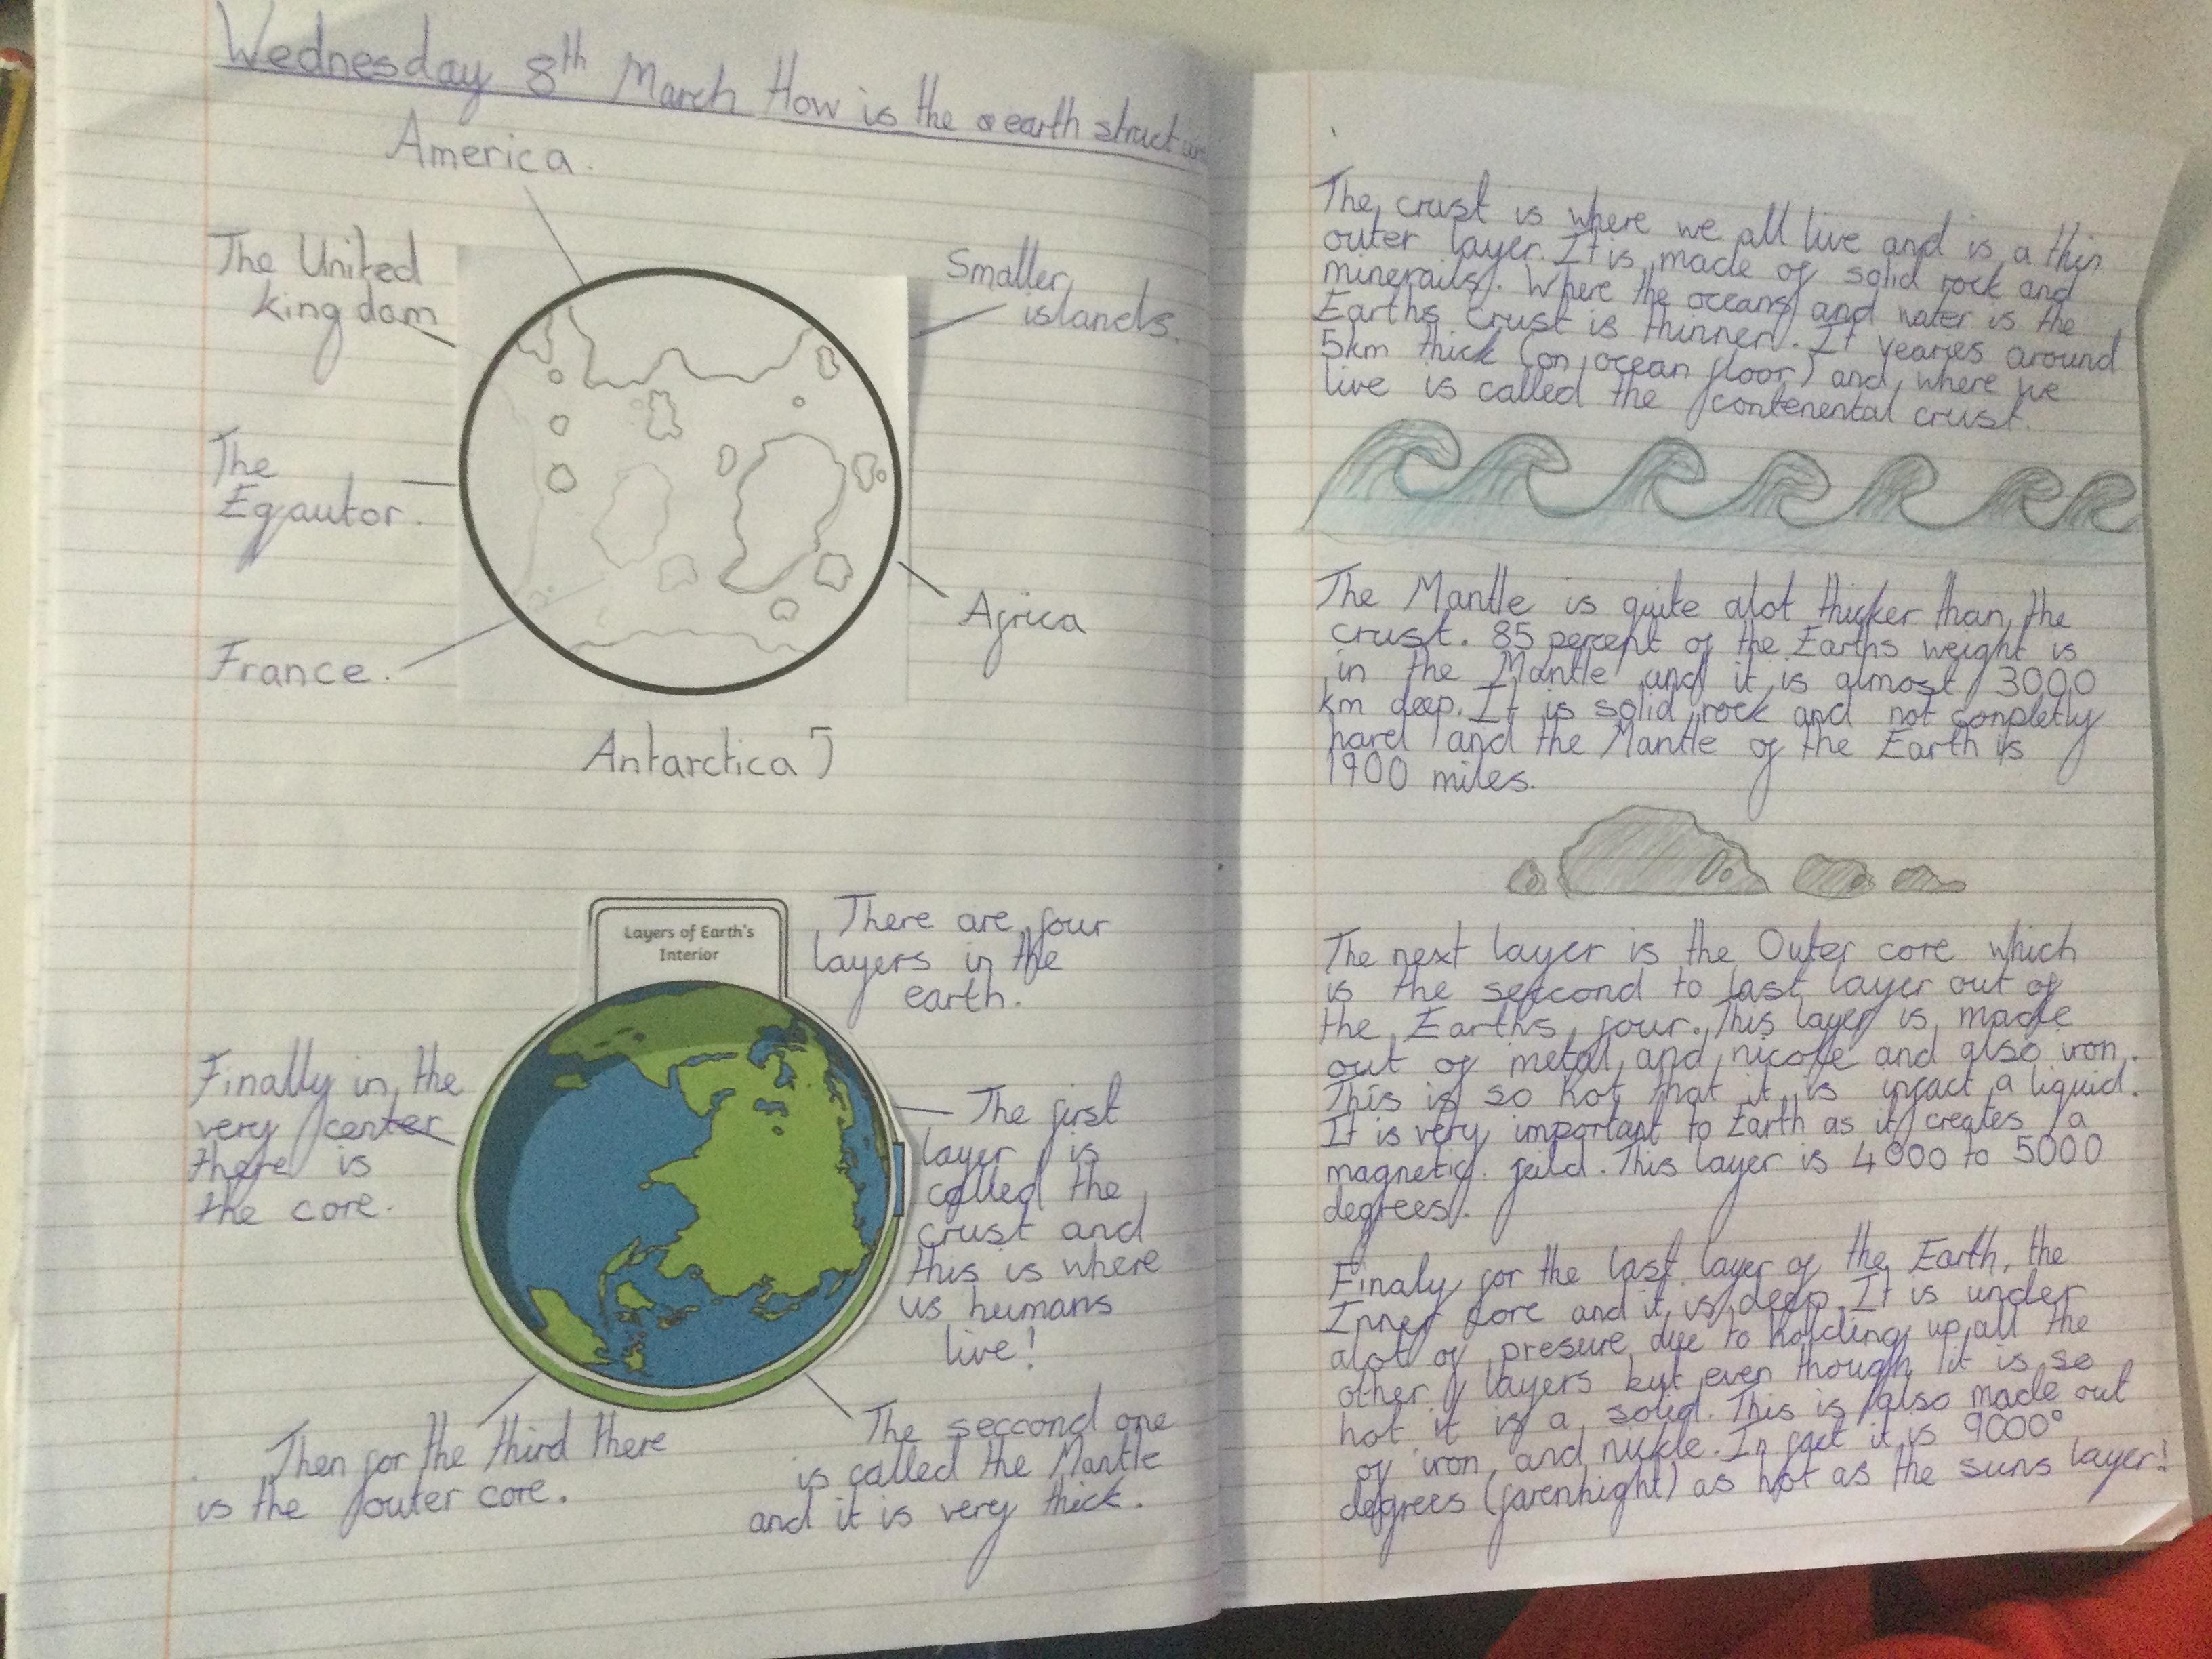 Wednesday 8th March How is the earth struct
America.
The United
kingdom
Smaller
islands.
The
Eqautor.
France.
Africa
Antarctica
Layers of Earth's
Interior
There are four
layers in the
earth.
Finally in the
very center
there is
the core.
The first
layer is
called the
crust and
this is where
us humans
live!
Then for the third there
is the outer core.
The seccond one
is called the Mantle
and it is very thick.
The crust is where we all live and is a thin
outer layer. It is made of solid rock and
minerails. Where the oceans and water is the
Earths crust is thinner. It vearies around
5km thick (on ocean floor) and where we
live is called the contenental crust.
The Mantle is quite alot thicker than the
crust. 85 percent of the Earths weight is
in the Mantle and it is almost 3000
km deep. It is solid rock and not conpletly
hard and the Mantle of the Earth is
1900 miles.
The next layer is the Outer core which
is the seccond to last layer out of
the Earths four. This layer is made
out of metal and nicole and also iron.
This is so hot that it is infact a liquid.
It is very important to Earth as it creates a
magnetic feild. This layer is 4000 to 5000
degrees.
Finaly for the last layer of the Earth, the
Inner core and it is deep. It is under
alot of presure due to holding up all the
other layers but even though it is so
hot it is a solid. This is also made out
of iron and nickle. In fact it is 9000°
degrees (farenhight) as hot as the suns layer!